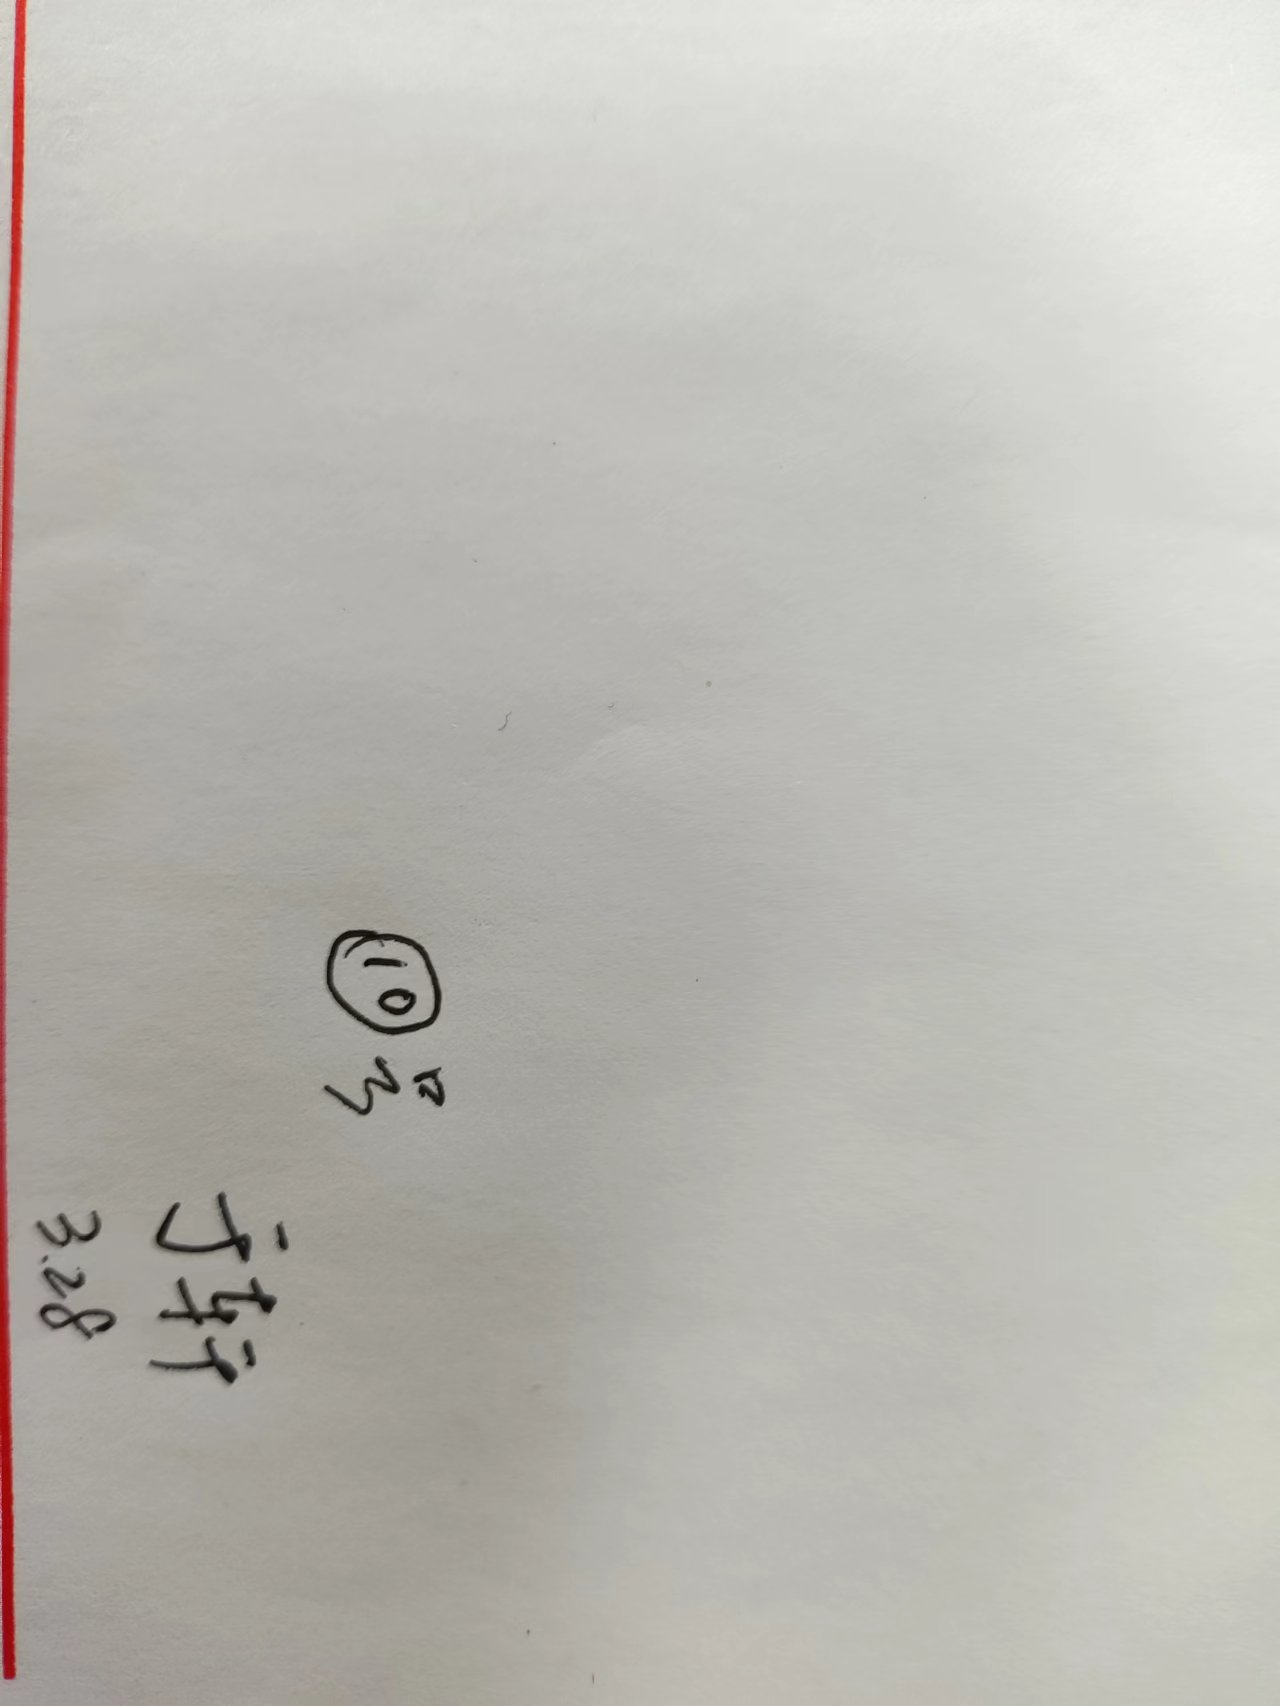 ⑩号
于轩
3.28